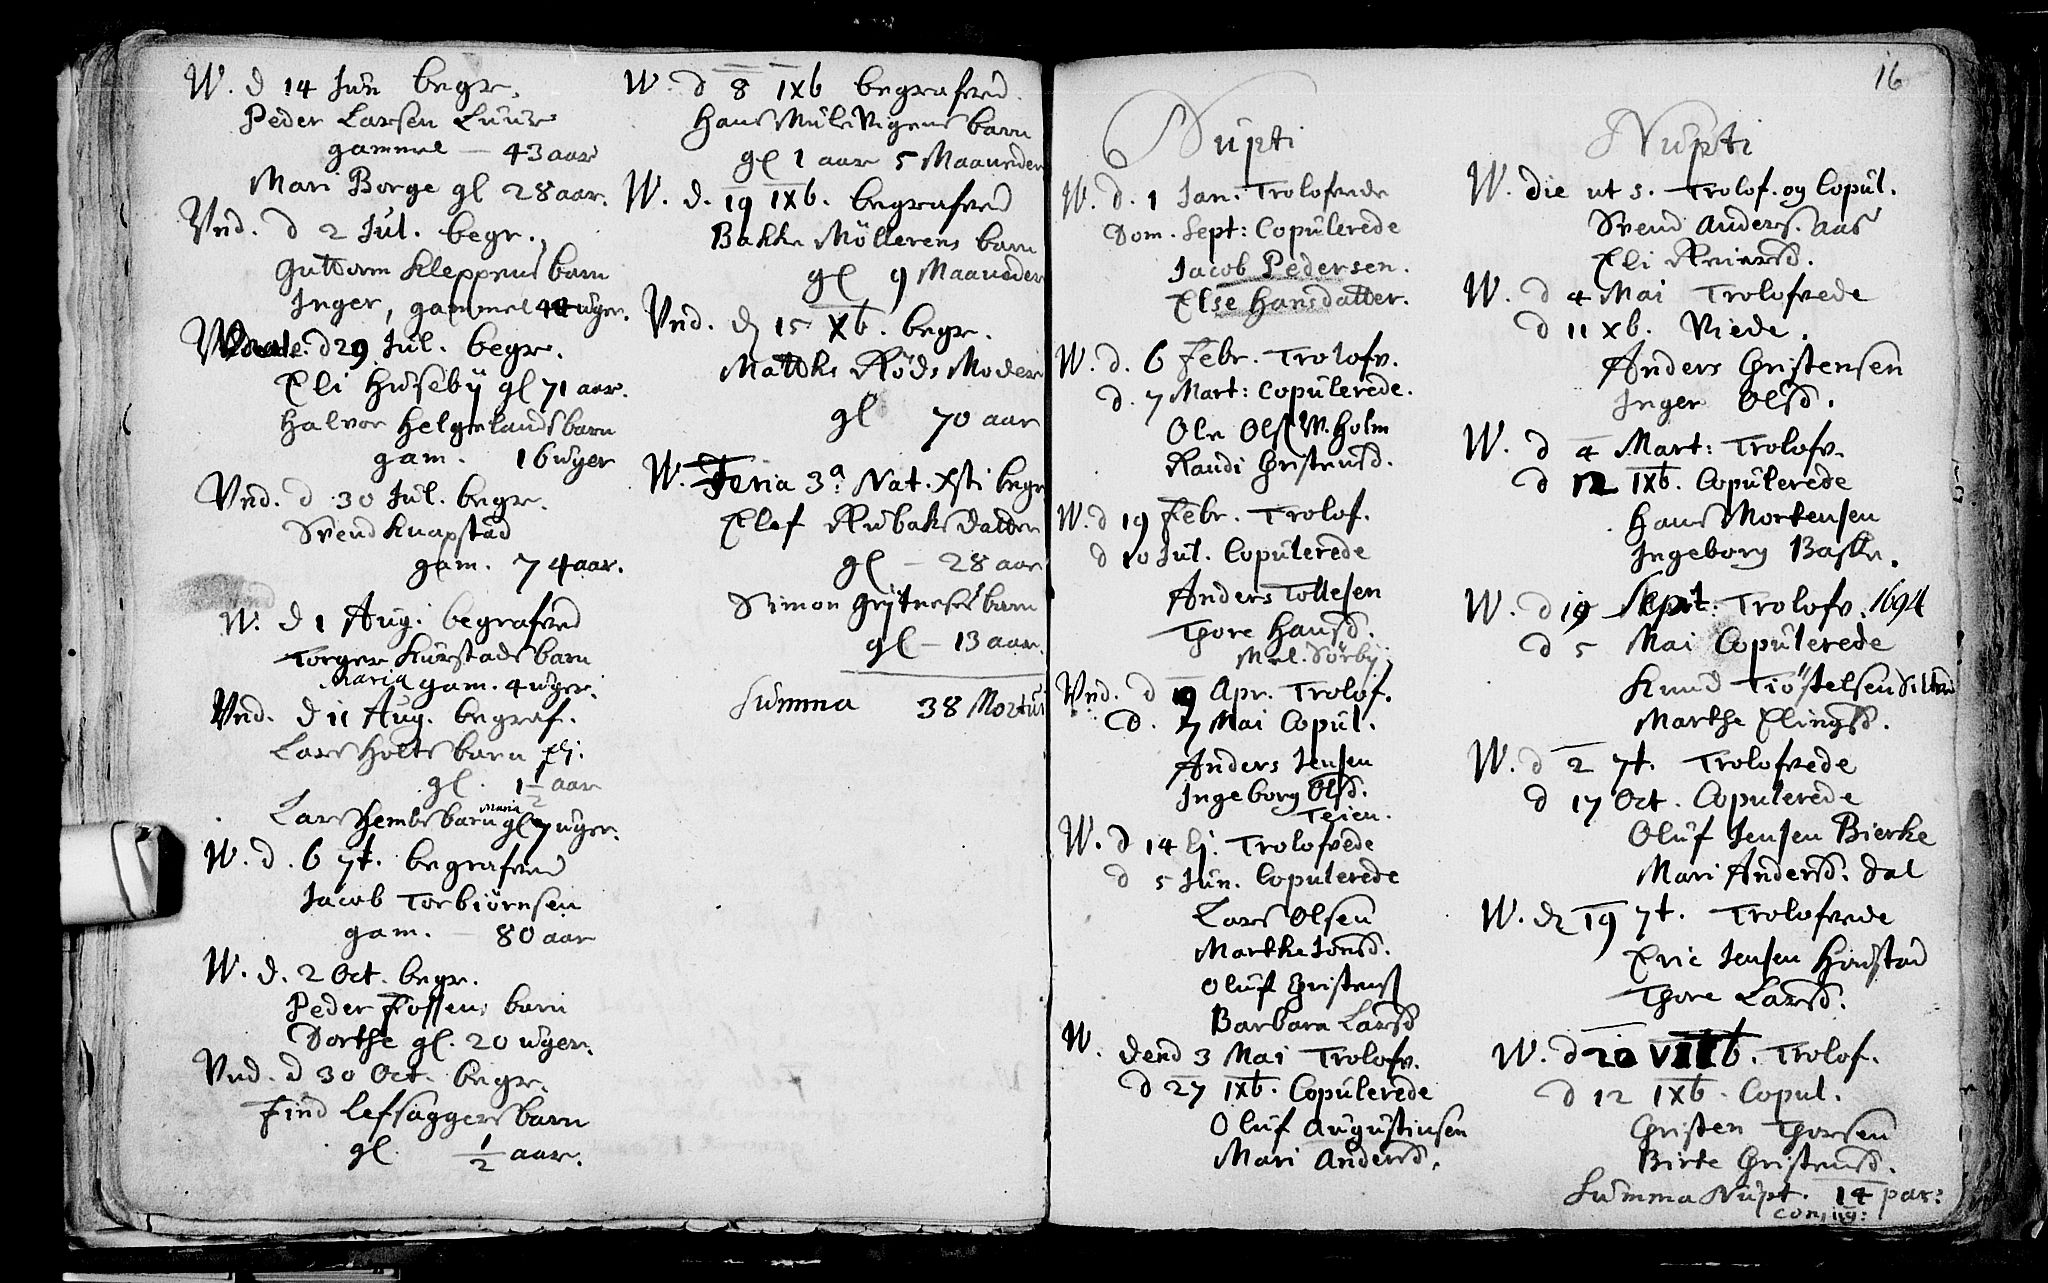 W. d 14 Jun begr.
Peder Larsen Luur
gammel — 43 aar
Mari Borge gl 28 aar.
Vnd. d 2 Jul. begr.
Guttorm Kleppens barn
Inger, gammel uger.
d 29 Jul. begr.
Eli Huseby gl 71 aar.
Halvor Helgelands barn
gam. 16 uger
Vnd. d. 30 Jul. begr.
Svend Knapstad
gam. 74 aar.
W. d 1 Aug: begrafved
Torger Kurstads barn
Maria gam. 4 uger.
Vnd. d 11 Aug. begraf.
Lars Holts barn Eli.
gl. 1 1/2 aar
Lars Hembs barn Maria gl 7 uger.
W. d. 6 7t. begrafved
Jacob Torbiörnsen
gam. — 80 aar
W. d. 2 Oct. begr.
Peder Fossens barn
Dorthe gl. 20 uger.
Vnd. d 30 Oct. begr.
Find Lefsaggers barn
gl. 1/2 aar.
W. d 8 IXb begrafved.
Hans Mule Vigens barn
gl 1 aar 5 Maaneder
W. d. 19 IXb. begrafved
Bakke Möllerens barn
gl 9 Maaneder
Vnd. d 15 Xb. begr.
Matths Röds Moder
gl 70 aar
W. Feria 3a Nat. Xsti begr
Elef Datter
gl — 28 aar
Simon barn
gl — 13 aar.
Summa 38 Mortui
16
Nupti
W. d. 1 Jan: Trolofvede
Dom. Sept: Copulerede
Jacob Pedersen.
Else Hansdatter.
W. d. 6 Febr. Trolofv.
d. 7 Mart: Copulerede.
Ole Ols. W. Holm
Randi Christensd.
W. d 19 Febr. Trolof.
d 10 Jul. Copulerede
Anders Tollesen
Thore Hansd.
Mel. Sörby
Vnd. d 19 Apr. Trolof.
d. 7 Mai Copul.
Anders Jensen
Ingeborg Olsd.
Teien.
W. d 14 Ej. Trolofvede
d 5 Jun. Copulerede
Lars Olsen
Marthe Jonsd.
Oluf Christens.
Barbara Larsd
W. dend 3 Mai Trolofv.
d 27 IXb. Copulerede
Oluf Augustinsen
Mari Andersd.
Nupti
W. die ut s. Trolof. og Copul.
Svend Anders. Aas
Eli Reiersd.
W. d 4 Mai Trolofvede
d 11 Xb. Viede.
Anders Christensen
Inger Olsd.
W. d 4 Mart: Trolofv.
d 12 IXb. Copulerede
Hans Mortensen
Ingeborg Baske.
W. d 19 Sept: Trolofv. 1694
d 5 Mai Copulerede
Knud Tiöstelsen
Marthe Elingsd.
W. d 2 7t. Trolofvede
d 17 Oct. Copulerede
Oluf Jensen Bierke
Mari Andersd. Dal
W. d 19 7t. Trolofvede
Eric Jensen Houstad
Thore Larsd.
W. d 20 VIIIb. Trolof.
d 12 IXb. Copul.
Christen Thorsen
Birte Christensd.
Summa Nupt. 14 par:
coniug: